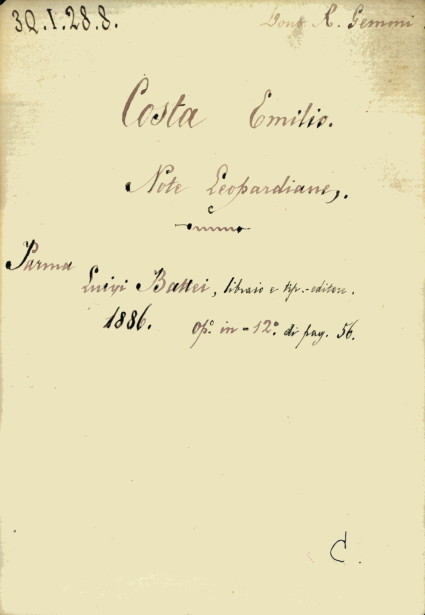 3Q.I.28.8. Dono R. Gemmi
Costa Emilio.
Note Leopardiane.
Parma
Luigi Battei, libraio e tip.-editore.
1886. op.º in-12º di pag. 56.
C.